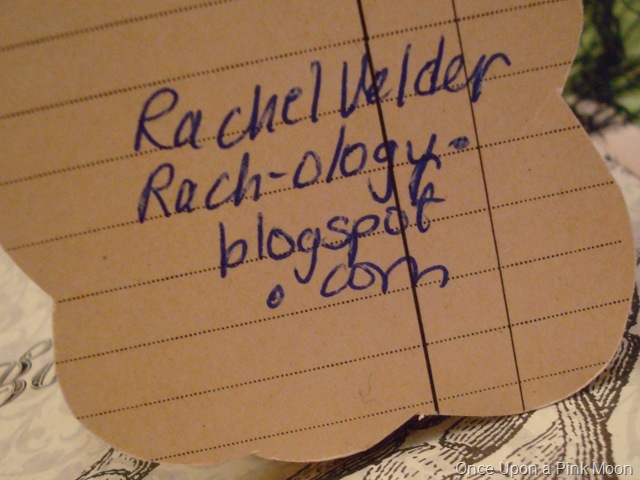 Rachel Velder
Rach-ology.
blogspot
.com
Once Upon a Pink Moon